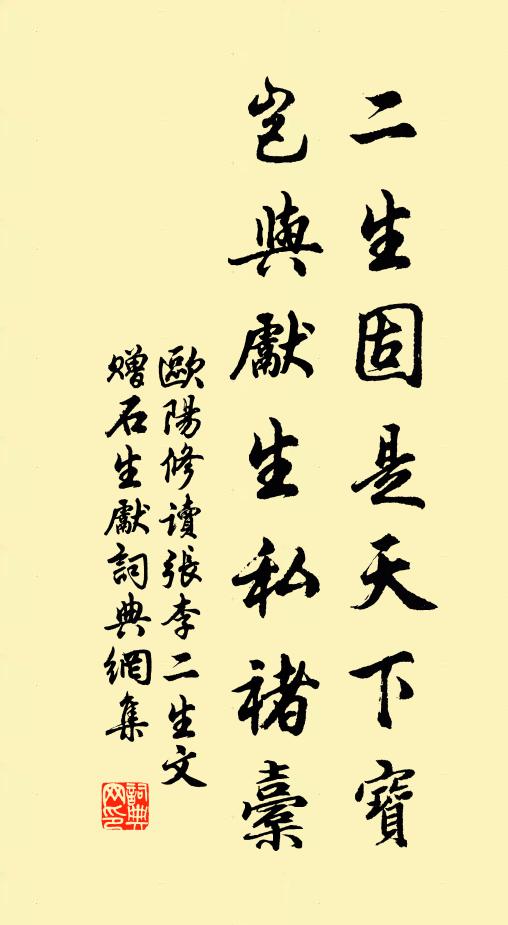 二生固是天下寶
豈與獻生私褚橐
歐陽修讀張李二生文
贈石生獻詞典網集
詞典
网印